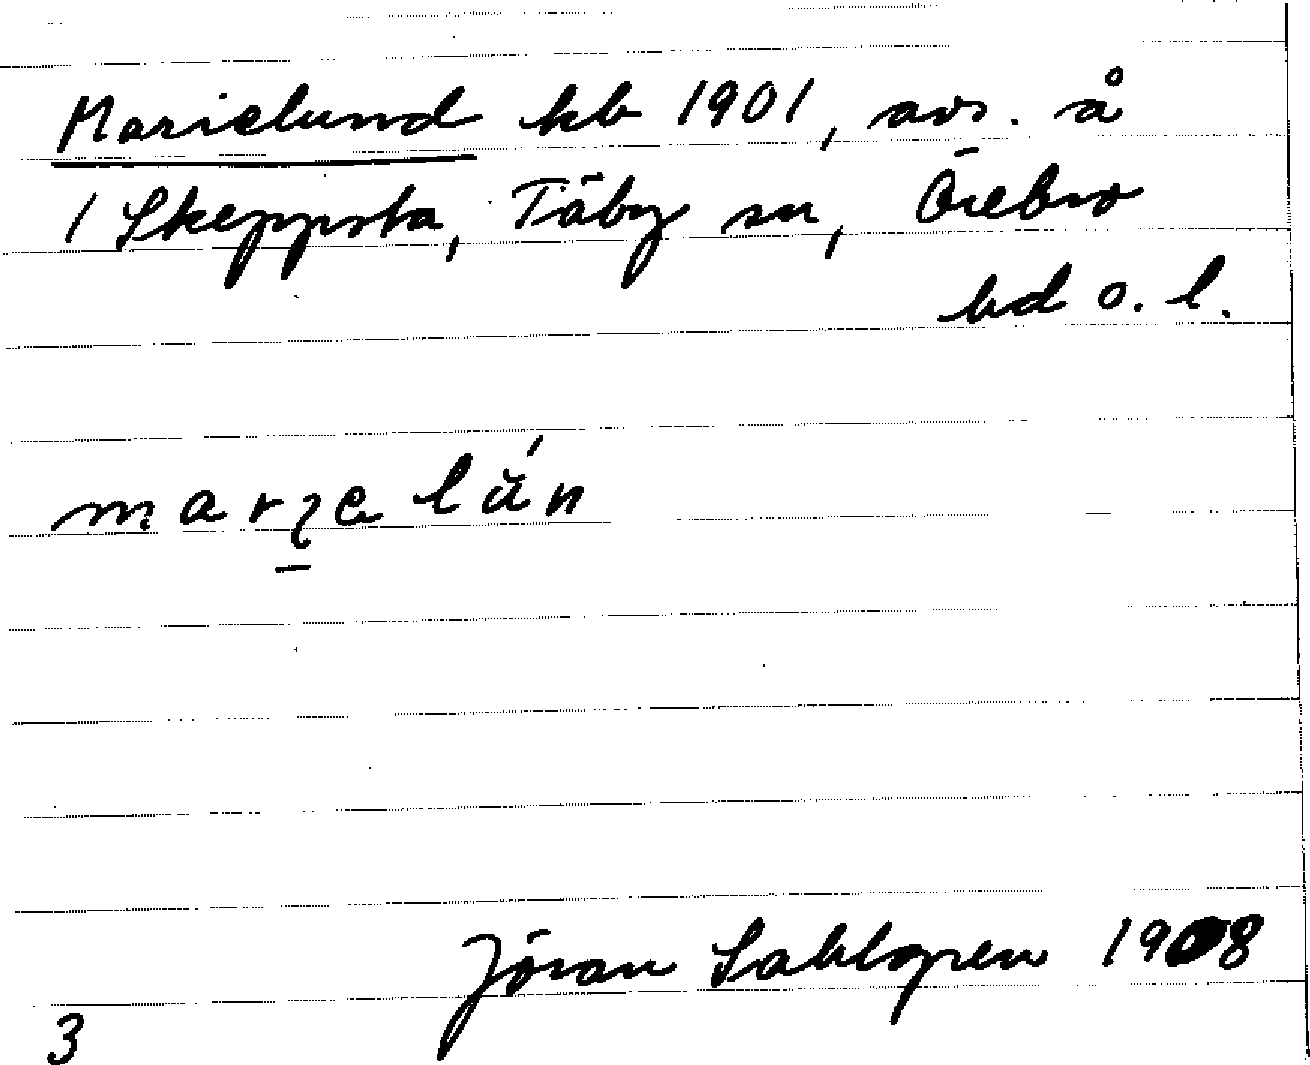 Marielund kb 1901, avs. å
1 Skeppsta, Täby sn, Örebro
hd o. l.
Jöran Sahlgren 1908
3